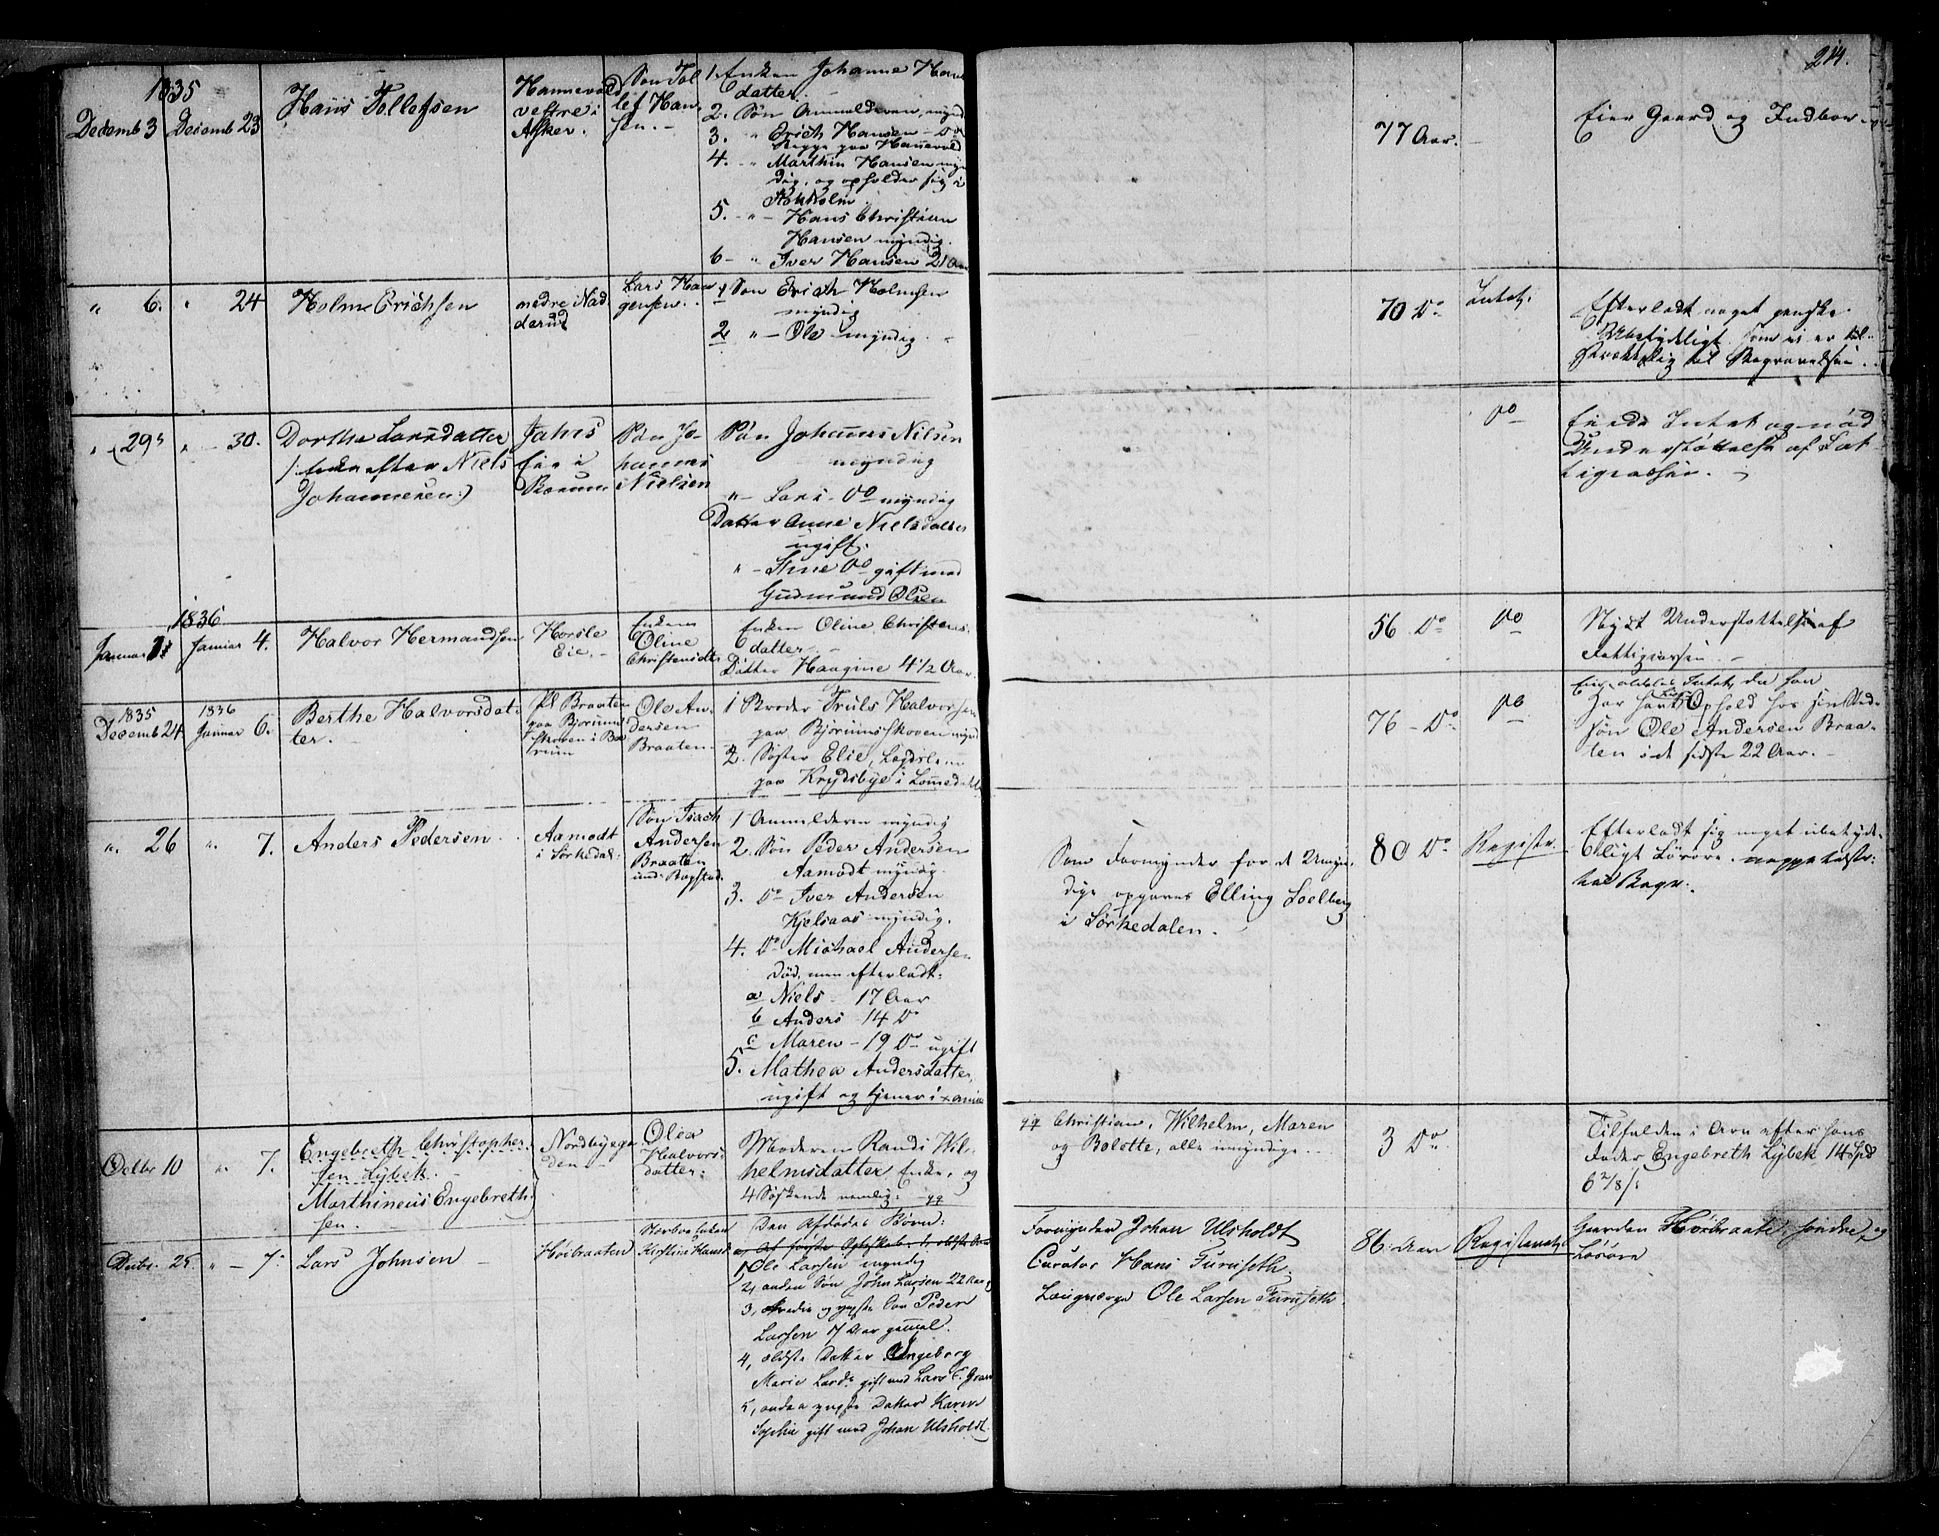 214.
1835
Decemb 3
Decemb 23
Hans Tollefsen
Hannevold
vestre i
Asker.
Søn Tol
lef Han
sen.
1. Enken Johanne Hans
datter.
2. Søn Anmelderen, mynd
3. " Erich Hansen - Do
Begge paa Hannevold
4. " Marthin Hansen myn
dig, og opholder sig i
Stokholm
5. " Hans Christian
Hansen myndig.
6 - " Iver Hansen 21 Aar
77 Aar.
Eier Gaard og Indboe
" 6.
" 24
Holm Erichsen
nedre Nad
derud
Lars Haa
gensen.
1 Søn Erich Holmsen
myndig
2 " - Ole myndig.
70 Do
Intet.
Efterladt noget ganske
Ubetydeligt som ei er til
strækkelig til Begravelsen.
" 29
" - 30.
Dorthe Larsdatter
/: Enke efter Niels
Johannesen :)
Jahrs
Eie i
Bærum
Søn Jo-
hannes
Nielsen
Søn Johannes Nilsen
myndig
" - Lars. Do myndig
Datter Anne Nielsdatter
ugift.
" - Stine Do gift med
Gudmund Olsen
Do
Eiede Intet og nød
Understøttelse af Fat-
tigcassen.
1836
Januar 1
Januar 4.
Halvor Hermandsen
Horsle
Eie.
Enken
Oline
Christensdtr
Enken Oline Christens-
datter
Datter Haagine 4 1/2 Aar.
56 Do
Do
Nydt Understøttelse af
Fattigcassen
1835
Decemb 24
1836
Januar 6.
Berthe Halvorsdat-
ter.
Pl Braaten
paa Bjørum-
skoven i Bæ
rum
Ole An-
dersen
Braaten
1 Broder Truls Halvorsen
paa Bjørumskoven mynd
2. Søster Elie,
paa Krydsbye i Lomedalen
76 - Do
Do
Eier aldeles Intet, da hun
har havt Ophold hos sin Sted-
søn Ole Andersen Braa-
ten i de sidste 22 Aar.
" 26
" 7.
Anders Pedersen
Aamodt
i Sørkedal:
Søn Isach
Andersen
Braaten
und: Bogstad.
1 Anmelderen myndig
2. Søn Peder Andersen
Aamodt myndig.
3. Do Iver Andersen
Kjelsaas myndig.
4. Do Michael Andersen
Død, men efterladt:
a Niels - 17 Aar
b Anders - 14 Do
c Maren - 19 Do ugift
5. Mathea Andersdatter,
ugift og tjener i
Som Formynder for de Umyn-
dige opgives Elling Soelberg
i Sørkedalen.
80 Do
Registr.
Efterladt sig noget ubetyde-
ligt Løsøre.
Octbr 10
" 7.
Engebreth Christopher-
sen Lybek
Marthineus Engebreth
sen.
Nordbyega
den
Olea
Halvors-
datter:
Moderen Randi Wil-
helmsdatter, Enke, og
4 Søskende nemlig:
Christian, Wilhelm, Maren
og Bolette, alle umyndige.
3 Do
Tilfalden i Arv efter hans
Fader Engebreth Lybek 14 Spd
Decbr. 25
" - 7
Lars Johnsen
Høibraaten
Kirstine Hansd
Den Afdødes Børn:
1, Ole Larsen myndig
2, anden Søn John Larsen 22 Aar
3, tredie og yngste Søn Peder
Larsen 17 Aar gammel.
4, ældste Datter Ingeborg
Marie Larsdr gift med Lars
5, anden yngste Datter Karen
Sophie gift med Johan Ulsholdt.
Formynder Johan Ulsholdt
Curator Hans Furuseth.
Laugværge Ole Larsen Furuseth.
86: Aar
Registreret
Gaarden Høibraaten søndre, og
Løsøre